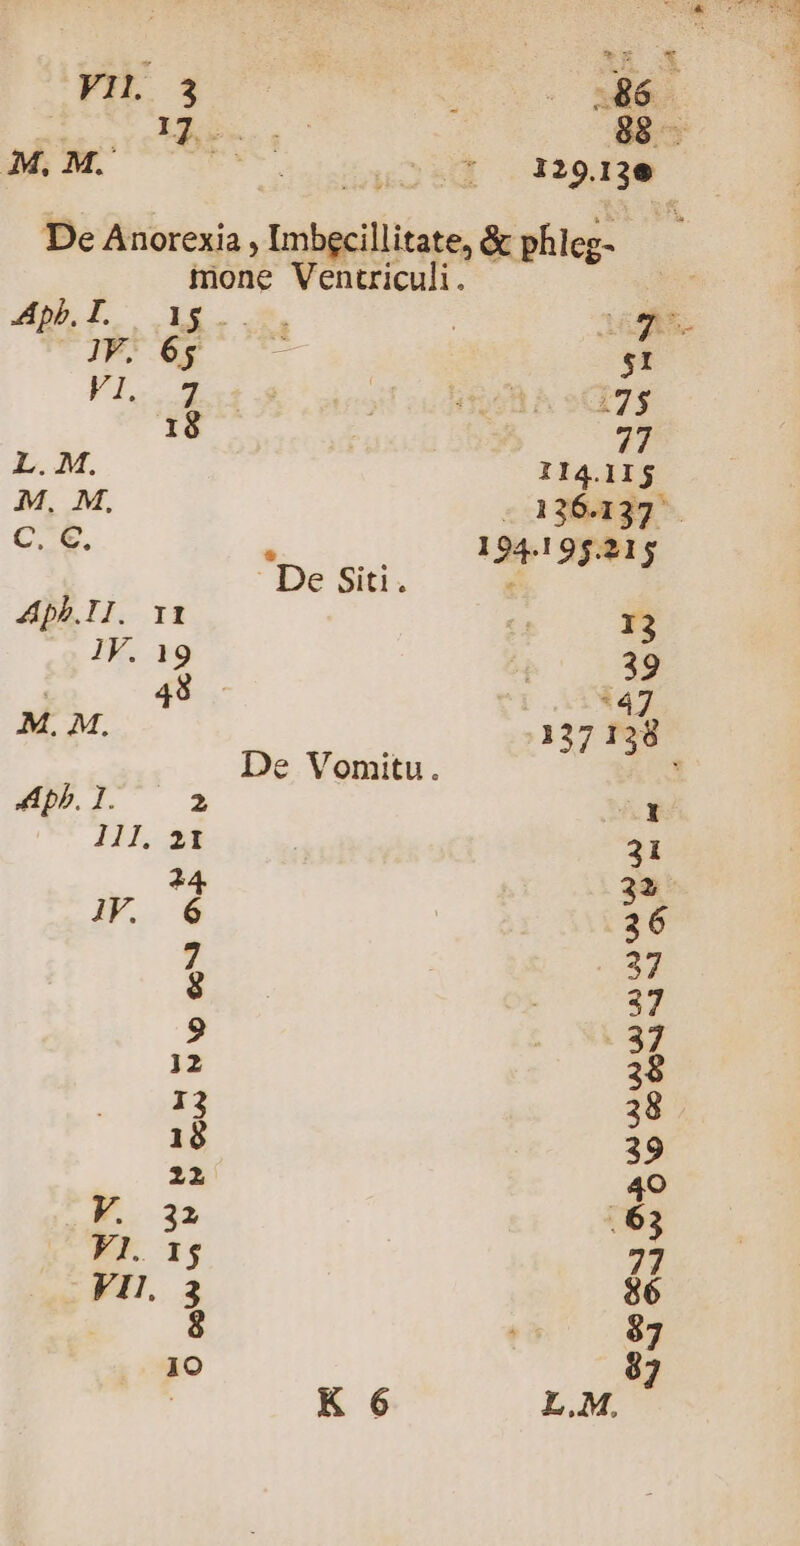 VII. 3 86
17 88
M. M. 129.130
De Anorexia, Imbecillitate, & phleg-
mone Ventriculi.
Aph. I. 15 7
IV. 65 51
VI. 7 75
18 77
L. M. 114.115
M. M. 136.137
C. C. 194.195.215
De Siti.
Aph. II. 11 13
IV. 19 39
48 47
M. M. 137 138
De Vomitu.
Aph. I. 2 1
III. 21 31
24 32
IV. 6 36
7 37
8 37
9 37
12 38
13 38
18 39
22 40
V. 32 63
VI. 15 77
VII. 3 86
8 87
10 87
K 6 L.M.